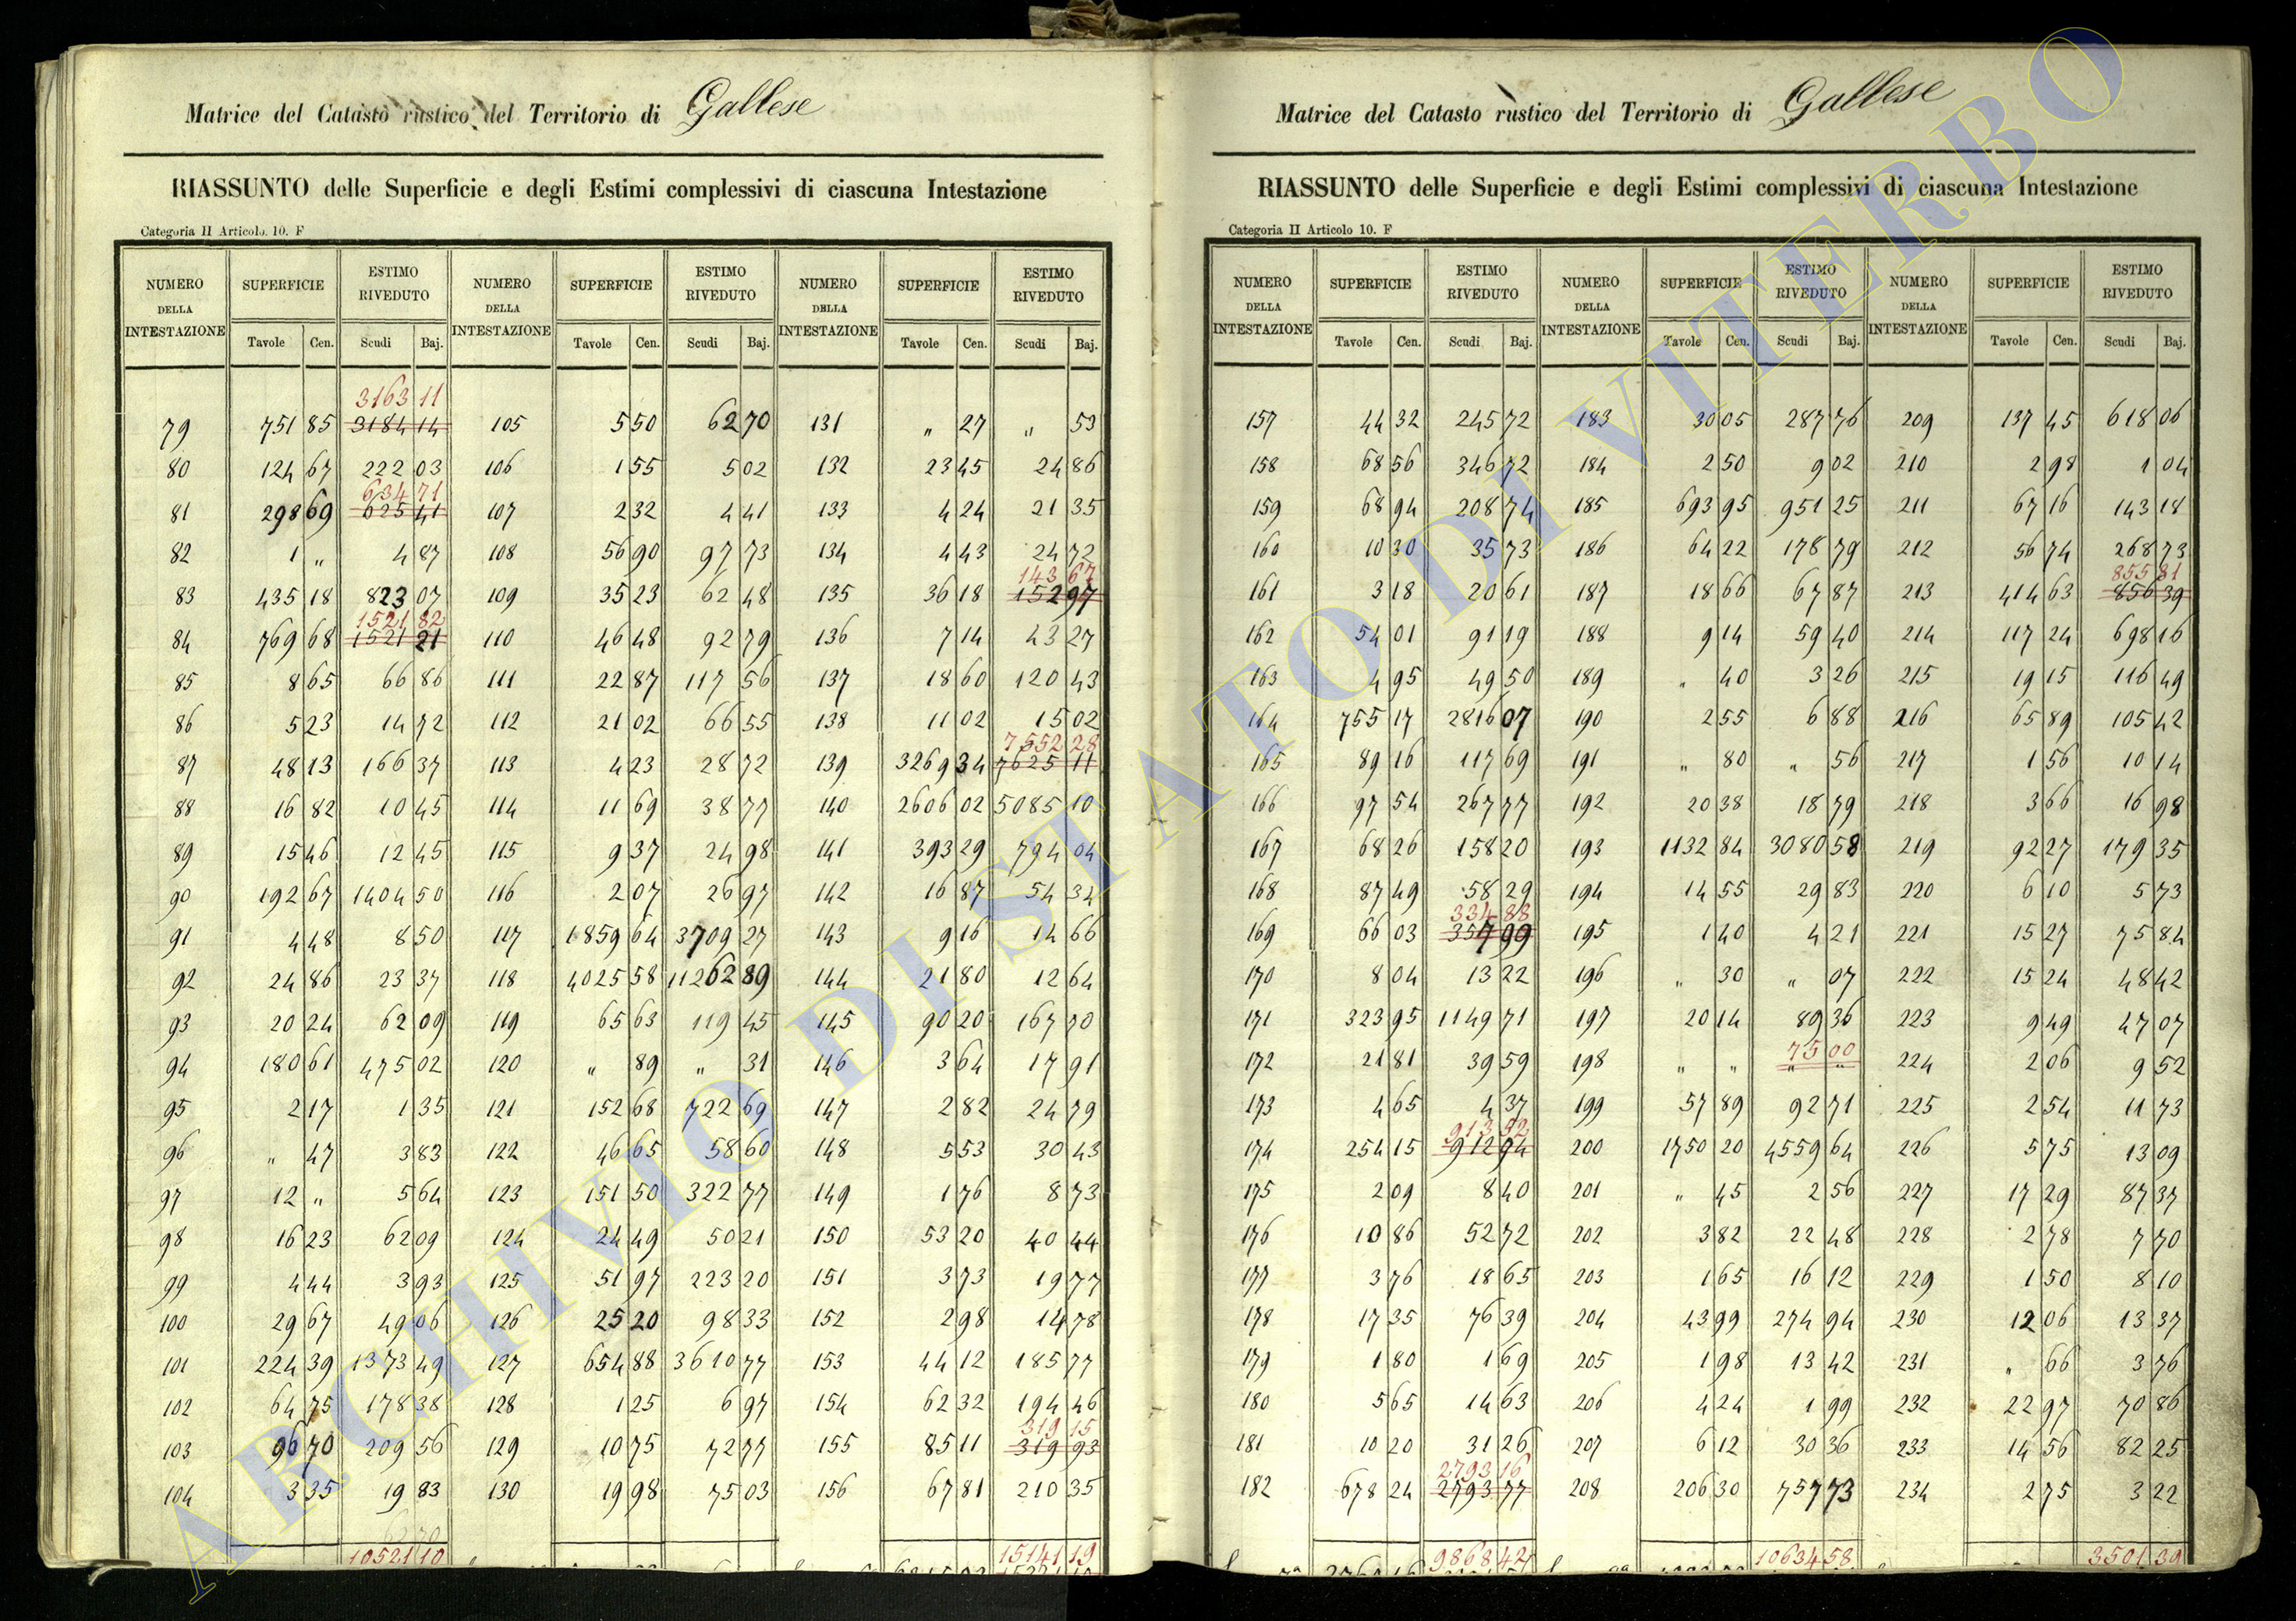 Matrice del Catasto rustico del Territorio di Gallese
RIASSUNTO delle Superficie e degli Estimi complessivi di ciascuna Intestazione
Categoria II Articolo. 10. F
NUMERO DELLA INTESTAZIONE SUPERFICIE ESTIMO RIVEDUTO NUMERO DELLA INTESTAZIONE SUPERFICIE ESTIMO RIVEDUTO NUMERO DELLA INTESTAZIONE SUPERFICIE ESTIMO RIVEDUTO
Tavole Cen. Scudi Baj. Tavole Cen. Scudi Baj. Tavole Cen. Scudi Baj.
3163 11
79 751 85 3184 14 105 5 50 62 70 131 " 27 " 53
80 124 67 222 03 106 1 55 5 02 132 23 45 24 86
634 71
81 298 69 625 41 107 2 32 4 41 133 4 24 21 35
82 1 " 4 87 108 56 90 97 73 134 4 43 24 72
143 67
83 435 18 823 07 109 35 23 62 48 135 36 18 152 97
1521 82
84 769 68 1521 21 110 46 48 92 79 136 7 14 43 27
85 8 65 66 86 111 22 87 117 56 137 18 60 120 43
86 5 23 14 72 112 21 02 66 55 138 11 02 15 02
7552 28
87 48 13 166 37 113 4 23 28 72 139 3269 34 7625 11
88 16 82 10 45 114 11 69 38 77 140 2606 02 5085 10
89 15 46 12 45 115 9 37 24 98 141 393 29 794 04
90 192 67 1404 50 116 2 07 26 97 142 16 87 54 34
91 4 48 8 50 117 1859 64 3709 27 143 9 16 14 66
92 24 86 23 37 118 4025 58 11262 89 144 21 80 12 64
93 20 24 62 09 119 65 63 119 45 145 90 20 167 70
94 180 61 475 02 120 " 89 " 31 146 3 64 17 91
95 2 17 1 35 121 152 68 722 69 147 2 82 24 79
96 " 47 3 83 122 46 65 58 60 148 5 53 30 43
97 12 " 5 64 123 151 50 322 77 149 1 76 8 73
98 16 23 62 09 124 24 49 50 21 150 53 20 40 44
99 4 44 3 93 125 51 97 223 20 151 3 73 19 77
100 29 67 49 06 126 25 20 98 33 152 2 98 14 78
101 224 39 1373 49 127 654 88 3610 77 153 44 12 185 77
102 64 75 178 38 128 1 25 6 97 154 62 32 194 46
319 15
103 96 70 209 56 129 10 75 72 77 155 85 11 319 93
104 3 35 19 83 130 19 98 75 03 156 67 81 210 35
10521 10 15141 19
Matrice del Catasto rustico del Territorio di Gallese
RIASSUNTO delle Superficie e degli Estimi complessivi di ciascuna Intestazione
Categoria II Articolo 10. F
NUMERO DELLA INTESTAZIONE SUPERFICIE ESTIMO RIVEDUTO NUMERO DELLA INTESTAZIONE SUPERFICIE ESTIMO RIVEDUTO NUMERO DELLA INTESTAZIONE SUPERFICIE ESTIMO RIVEDUTO
Tavole Cen. Scudi Baj. Tavole Cen. Scudi Baj. Tavole Cen. Scudi Baj.
157 44 32 245 72 183 30 05 287 76 209 137 45 618 06
158 68 56 346 72 184 2 50 9 02 210 2 98 1 04
159 68 94 208 74 185 693 95 951 25 211 67 16 143 18
160 10 30 35 73 186 64 22 178 79 212 56 74 268 73
855 81
161 3 18 20 61 187 18 66 67 87 213 414 63 856 39
162 54 01 91 19 188 9 14 59 40 214 117 24 698 16
163 4 95 49 50 189 " 40 3 26 215 19 15 116 49
164 755 17 2816 07 190 2 55 6 88 216 65 89 105 42
165 89 16 117 69 191 " 80 " 56 217 1 56 10 14
166 97 54 267 77 192 20 38 18 79 218 3 66 16 98
167 68 26 158 20 193 1132 84 3080 58 219 92 27 179 35
168 87 49 58 29 194 14 55 29 83 220 6 10 5 73
334 88
169 66 03 357 99 195 1 40 4 21 221 15 27 75 84
170 8 04 13 22 196 " 30 " 07 222 15 24 48 42
171 323 95 1149 71 197 20 14 89 36 223 9 49 47 07
75 00
172 21 81 39 59 198 " " " " 224 2 06 9 52
173 4 65 4 37 199 57 89 92 71 225 2 54 11 73
913 52
174 254 15 912 94 200 1750 20 4559 64 226 5 75 13 09
175 2 09 8 40 201 " 45 2 56 227 17 29 87 37
176 10 86 52 72 202 3 82 22 48 228 2 78 7 70
177 3 76 18 65 203 1 65 16 12 229 1 50 8 10
178 17 35 76 39 204 43 99 274 94 230 12 06 13 37
179 1 80 1 69 205 1 98 13 42 231 " 66 3 76
180 5 65 14 63 206 4 24 1 99 232 22 97 70 86
181 10 20 31 26 207 6 12 30 36 233 14 56 82 25
2793 16
182 678 24 2793 77 208 206 30 757 73 234 2 75 3 22
9868 42 10634 58 3501 39
ARCHIVIO DI STATO DI VITERBO